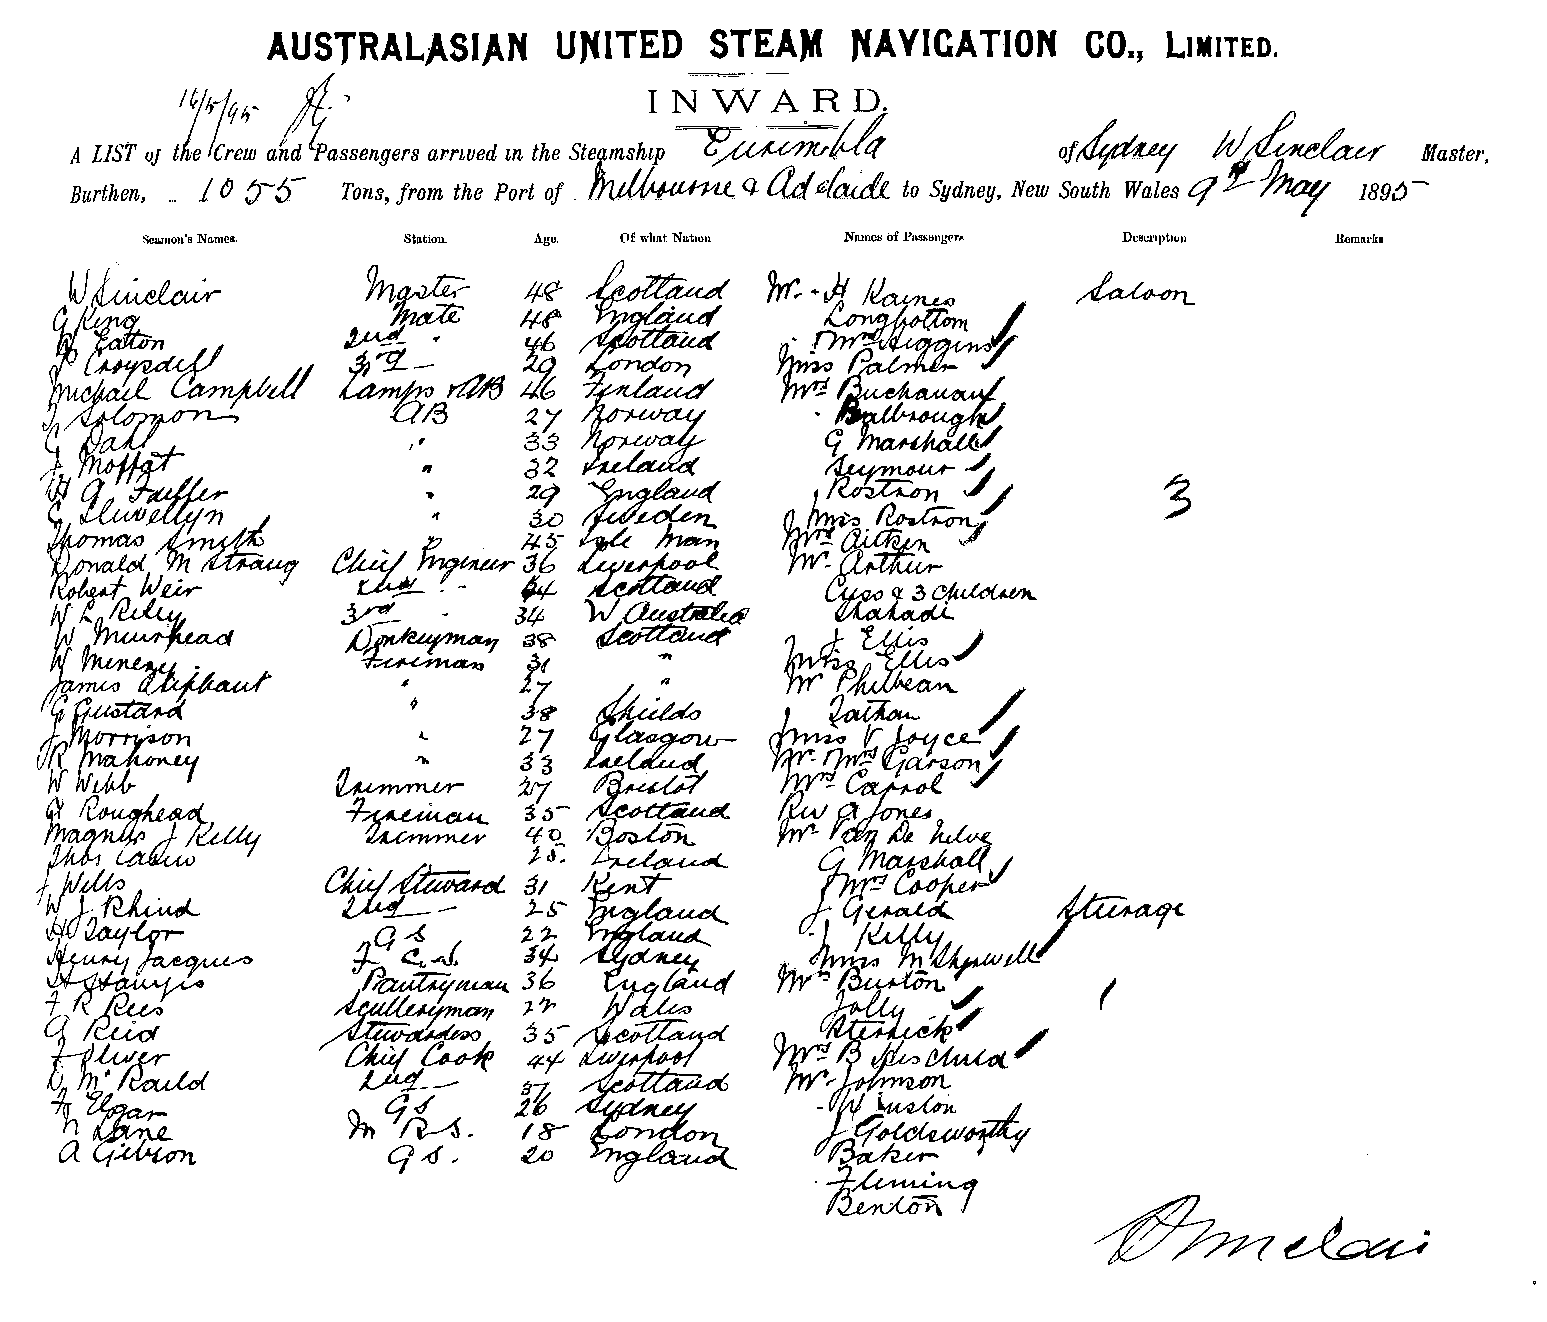 AUSTRALASIAN UNITED STEAM NAVIGATION CO., LIMITED.
INWARD.
16/5/95
A LIST of the Crew and Passengers arrived in the Steamship Eurimbla of Sydney W Sinclair Master,
Burthen, 1055 Tons, from the Port of Melbourne & Adelaide to Sydney, New South Wales 9th May 1895
Seamen's Names. Station. Age. Of what Nation Names of Passengers Description Remarks
W Sinclair Master 48 Scotland Mr. H Kaines Saloon
G King Mate 48 England Longbottom
Eaton 2nd " 46 Scotland Mrs Higgins
Croysdell 3rd 29 London Miss Palmer
Michael Campbell Lamps & AB 46 Finland Mrs Buchanan
Solomon AB 27 Norway Balbrough
C Dahl " 33 Norway G Marshall
J Moffat " 32 Ireland Seymour
H A " 29 England Rostron 3
C Llewellyn " 30 Sweden Miss Rostron
Thomas Smith " 45 Isle Man Mrs Aitken
Donald M Strang Chief Engineer 36 Liverpool Mr. Arthur
Robert Weir 2nd " Scotland & 3 children
W L Riley 3rd " 34 W Australia
W Muirhead Donkeyman 38 Scotland J Ellis
W Menezy Fireman 31 " Miss Ellis
James Oliphant " 27 " Mr Philbean
G Gustard " 38 Shields
J Morryson " 27 Glasgow Miss V Joyce
R Mahoney " 33 Ireland Mr. Mrs Garson
W Webb Trimmer 27 Bristol Mrs Carrol
Roughead Fireman 35 Scotland Rev A Jones
Magnus J Kelly Trimmer 40 Boston Mr Van De Velve
Thos 25. Ireland G Marshall
J Wells Chief Steward 31 Kent Mrs Cooper
W J Rhind 2nd 25 England J Gerald Steerage
H Taylor GS 22 England J Kelly
Henry Jacques F C.S. 34 Sydney Miss M
Pantryman 36 England Mrs Burton
F R Rees Sculleryman 22 Wales Jolly
G Reid Stewardess 35 Scotland Sterrick
F Oliver Chief Cook 44 Liverpool Mrs B child
D McRauld 2nd 37 Scotland Mr. Johnson
F Elgar GS 26 Sydney
N Lane M R S. 18 London J Goldsworthy
A Gibson GS. 20 England Baker
Fleming
Benton
W Sinclair